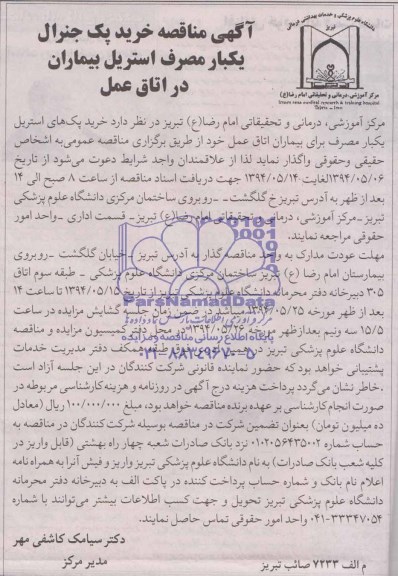 آگهی مناقصه خرید پک جنرال
یکبار مصرف استریل بیماران
در اتاق عمل
دانشگاه علوم پزشکی و خدمات بهداشتی درمانی
تبریز
مرکز آموزشی، درمانی و تحقیقاتی امام رضا(ع)
Imam reza medical research & training hospital
Tabriz - Iran
مرکز آموزشی، درمانی و تحقیقاتی امام رضا(ع) تبریز در نظر دارد خرید پک‌های استریل
یکبار مصرف برای بیماران اتاق عمل خود از طریق برگزاری مناقصه عمومی‌به اشخاص
حقیقی وحقوقی واگذار نماید لذا از علاقمندان واجد شرایط دعوت می‌شود از تاریخ
۱۳۹۴/۰۵/۰۶لغایت ۱۳۹۴/۰۵/۱۴ جهت دریافت اسناد مناقصه از ساعت ۸ صبح الی ۱۴
بعد از ظهر به آدرس تبریز خ گلگشت- – روبروی ساختمان مرکزی دانشگاه علوم پزشکی
تبریز–مرکز آموزشی، درمانی و تحقیقاتی امام رضا(ع) تبریز– قسمت اداری –واحد امور
حقوقی مراجعه نمایند.
مهلت عودت مدارک به واحد مناقصه گذار به آدرس تبریز –خیابان گلگشت –روبروی
بیمارستان امام رضا (ع) تبریز ساختمان مرکزی دانشگاه علوم پزشکی – طبقه سوم اتاق
۳۰۵ دبیرخانه دفتر محرمانه دانشگاه علوم پزشکی تبریز از تاریخ ۱۳۹۴/۰۵/۱۵ تا ساعت ۱۴
بعد از ظهر مورخه ۱۳۹۴/۰۵/۲۵ میباشد در ضمن زمان جلسه گشایش مزایده در ساعت
۱۵/۵ سه ونیم بعدازظهر مورخه ۱۳۹۴/۰۵/۲۶ در محل دفتر کمیسیون مزایده و مناقصه
دانشگاه علوم پزشکی تبریز در همکف دفتر مدیریت خدمات
پشتیبانی خواهد بود که حضور نماینده قانونی شرکت کنندگان در این جلسه آزاد است
.خاطر نشان می‌گردد پرداخت هزینه درج آگهی در روزنامه و هزینه کارشناسی مربوطه در
صورت انجام کارشناسی بر عهده برنده مناقصه خواهد بود، مبلغ ۱۰۰/۰۰۰/۰۰۰ ریال (معادل
ده میلیون تومان) بعنوان تضمین شرکت در مناقصه بوسیله شرکت کنندگان در مناقصه به
حساب شماره ۰۱۰۲۰۵۶۴۳۵۰۰۲ نزد بانک صادرات شعبه چهار راه بهشتی (قابل واریز در
کلیه شعب بانک صادرات) به نام دانشگاه علوم پزشکی تبریز واریز و فیش آنرا به همراه نامه
اعلام نام بانک و شماره حساب پرداخت کننده در پاکت الف به دبیرخانه دفتر محرمانه
دانشگاه علوم پزشکی تبریز تحویل و جهت کسب اطلاعات بیشتر می‌توانند با شماره
۰۴۱-۳۳۳۴۷۰۵۴ واحد امور حقوقی تماس حاصل نمایند.
دکتر سیامک کاشفی مهر
مدیر مرکز
م الف ۷۲۳۳ صائب تبریز
ParsNamadData
پایگاه اطلاع رسانی مناقصه و مزایده
۰۲۱-۸۸۳۴۹۶۷۰-۵